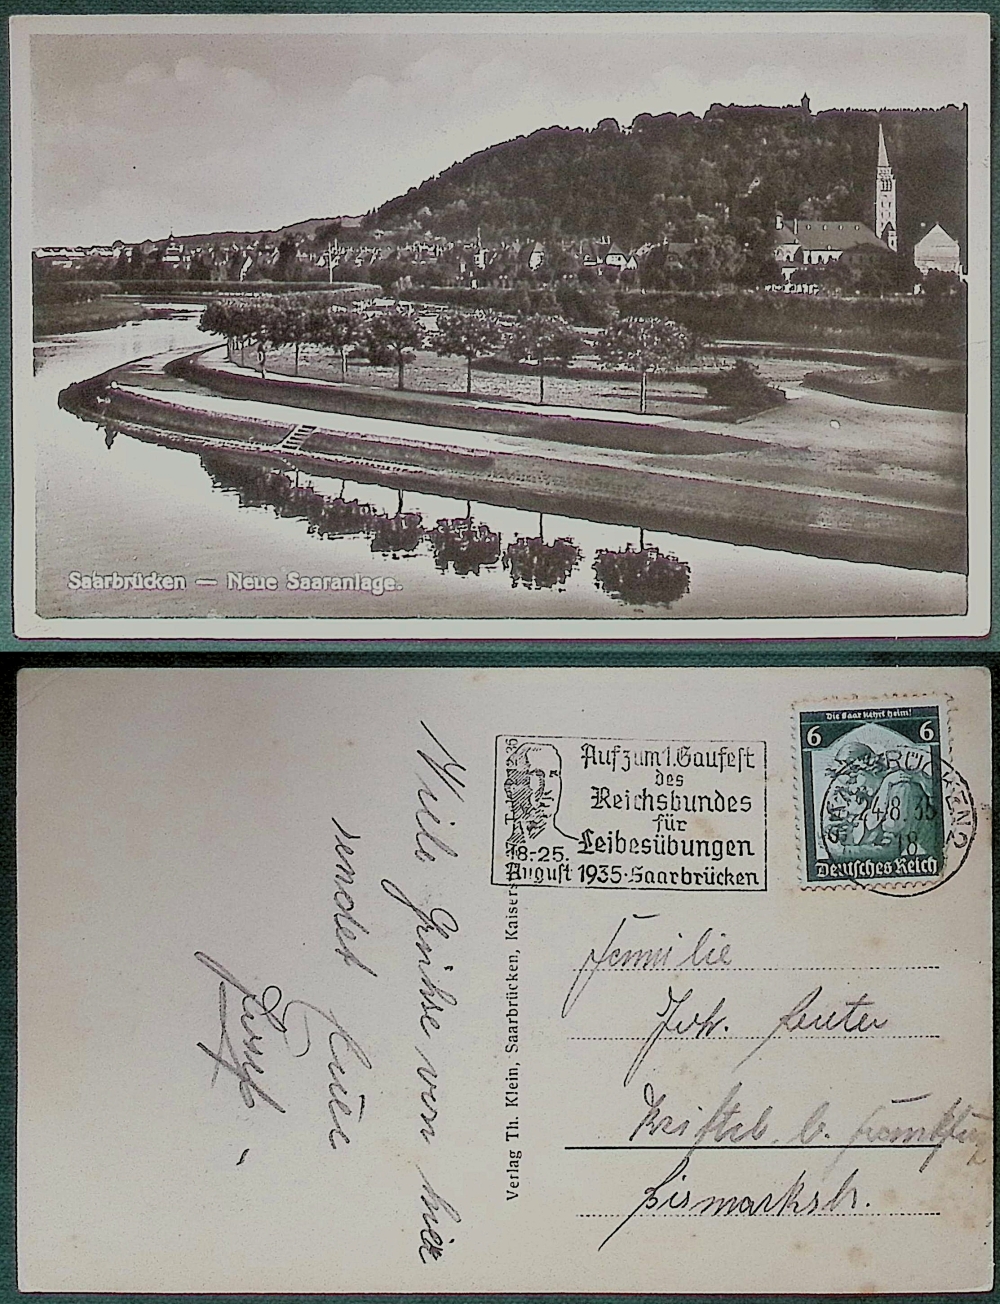 Saarbrücken — Neue Saaranlage.
Die Saar kehrt heim!
6 6
Deutsches Reich
SAARBRÜCKEN 2
24.8.35
18
Auf zum 1. Gaufest
des
Reichsbundes
für
Leibesübungen
18.-25.
August 1935·Saarbrücken
Verlag Th. Klein, Saarbrücken, Kaiserstr.
Viele Grüße von hier
sendet Eure
Familie
Joh.
b. Frankfurt
Bismarkstr.